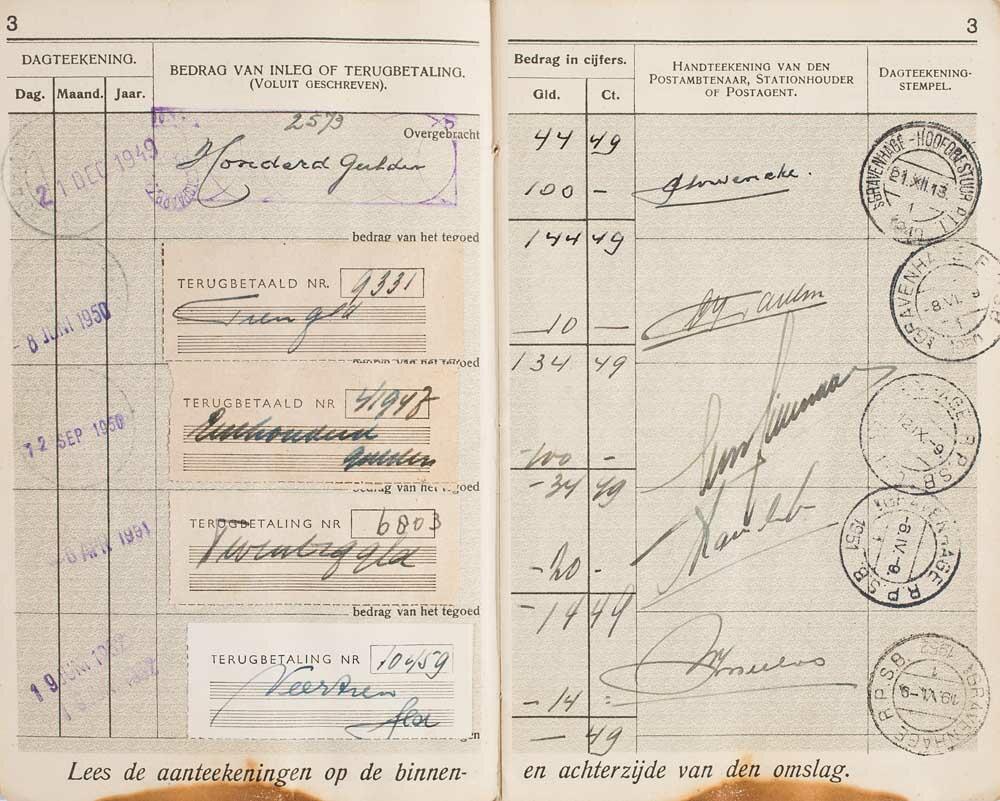 3
DAGTEEKENING.
Dag. Maand. Jaar.
BEDRAG VAN INLEG OF TERUGBETALING.
(VOLUIT GESCHREVEN).
2573
Overgebracht
21 DEC 1949
Honderd Gulden
bedrag van het tegoed
TERUGBETAALD NR. 9331
Tien gld
- 8 JUNI 1950
TERUGBETAALD NR 41947
Eenhonderd
gulden
12 SEP 1950
bedrag van het tegoed
TERUGBETALING NR 6803
Twintig gld
- 6 APR 1951
bedrag van het tegoed
TERUGBETALING NR 10459
Veertien
gld
19 JUNI 1952
Lees de aanteekeningen op de binnen-
3
Bedrag in cijfers.
Gld. Ct.
HANDTEEKENING VAN DEN
POSTAMBTENAAR, STATIONHOUDER
OF POSTAGENT.
DAGTEEKENING-
STEMPEL.
44 49
100 -
'SGRAVENHAGE-HOOFDBESTUUR P.T.T.
21.XII.13
1
1949
144 49
10 —
'SGRAVENHAGE
-8.VI. 9
1
134 49
100 -
R.P.S.B.
-34 49
-20 -
'SGRAVENHAGE R.P.S.B. 1951
-6.IV.-9.
1
-14 49
-14 =
'SGRAVENHAGE R.P.S.B. 1952
1
19.VI.-9
— 49
en achterzijde van den omslag.